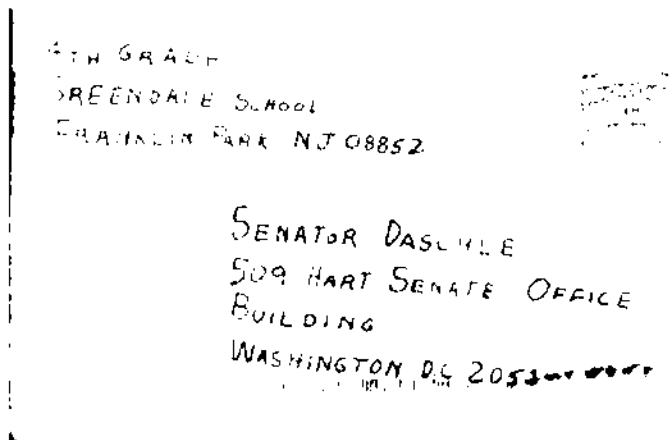 4TH GRADE
GREENDALE SCHOOL
FRANKLIN PARK NJ 08852
SENATOR DASCHLE
509 HART SENATE OFFICE
BUILDING
WASHINGTON D.C.